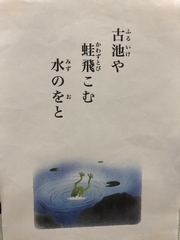 古池や
蛙飛こむ
水のをと
ふるいけ
かわずとび
みず
お